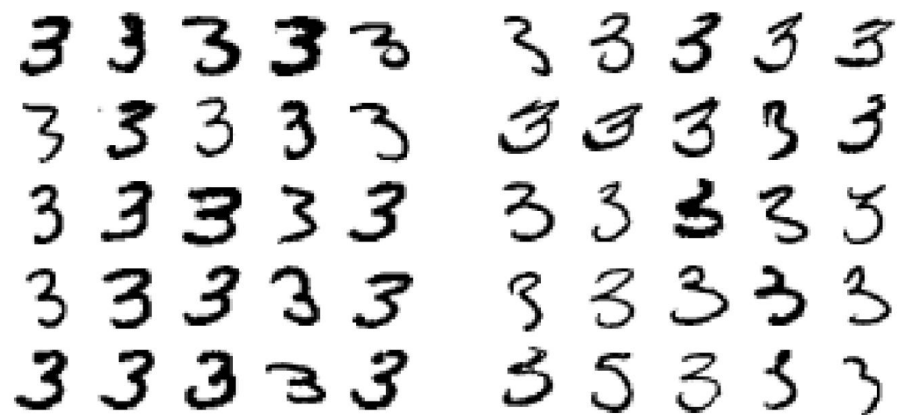 3 3 3 3 3 3 3 3 3 3
3 3 3 3 3 3 3 3 3 3
3 3 3 3 3 3 3 3 3 3
3 3 3 3 3 3 3 3 3 3
3 3 3 3 3 3 5 3 3 3